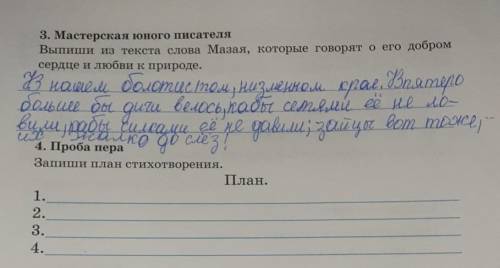 3. Мастерская юного писателя
Выпиши из текста слова Мазая, которые говорят о его добром
сердце и любви к природе.
В нашем болотистом, низменном крае. Впятеро
больше бы дичи велось, кабы сетями её не ло-
вили, кабы силками её не давили; зайцы вот тоже,-
их жалко до слёз!
4. Проба пера
Запиши план стихотворения.
План.
1.
2.
3.
4.